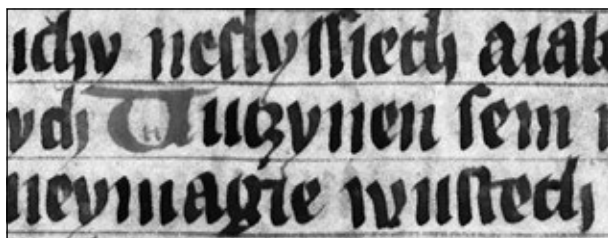 uchy neſlyſſiech aiak
ych Auczynen ſem
neymagie wuſtech